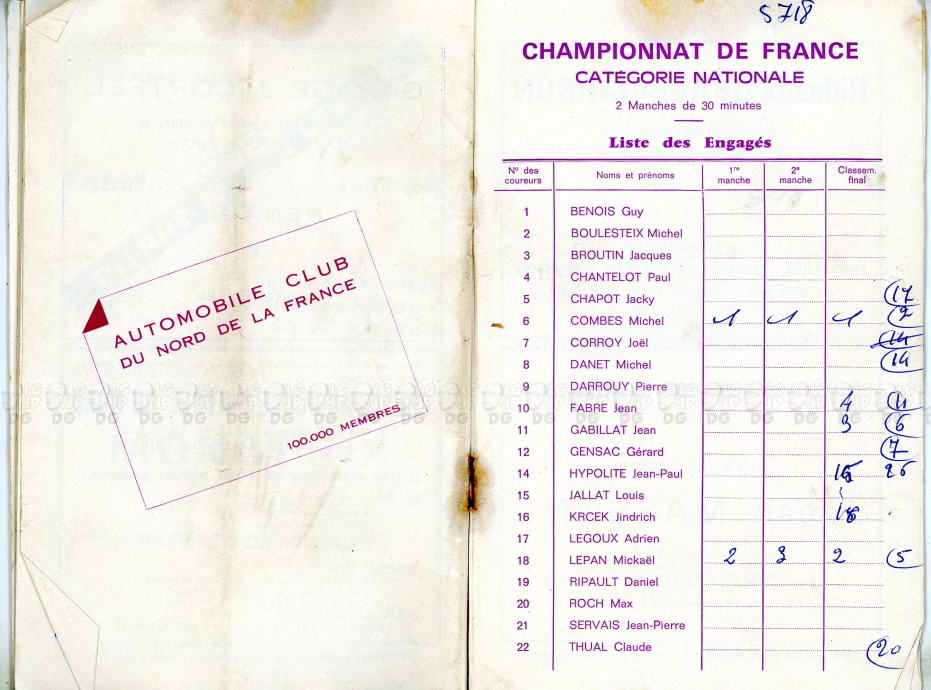 AUTOMOBILE CLUB
DU NORD DE LA FRANCE
100.000 MEMBRES
5718
CHAMPIONNAT DE FRANCE
CATÉGORIE NATIONALE
2 Manches de 30 minutes
Liste des Engagés
N° des coureurs Noms et prénoms 1re manche 2e manche Classem. final
1 BENOIS Guy
2 BOULESTEIX Michel
3 BROUTIN Jacques
4 CHANTELOT Paul
5 CHAPOT Jacky 17
6 COMBES Michel 1 1 1 2
7 CORROY Joël 14
8 DANET Michel 14
9 DARROUY Pierre
10 FABRE Jean 4 11
11 GABILLAT Jean 3 6
12 GENSAC Gérard 7
14 HYPOLITE Jean-Paul
15 JALLAT Louis
16 KRCEK Jindrich
17 LEGOUX Adrien
18 LEPAN Mickaël 2 3 2 5
19 RIPAULT Daniel
20 ROCH Max
21 SERVAIS Jean-Pierre
22 THUAL Claude 20